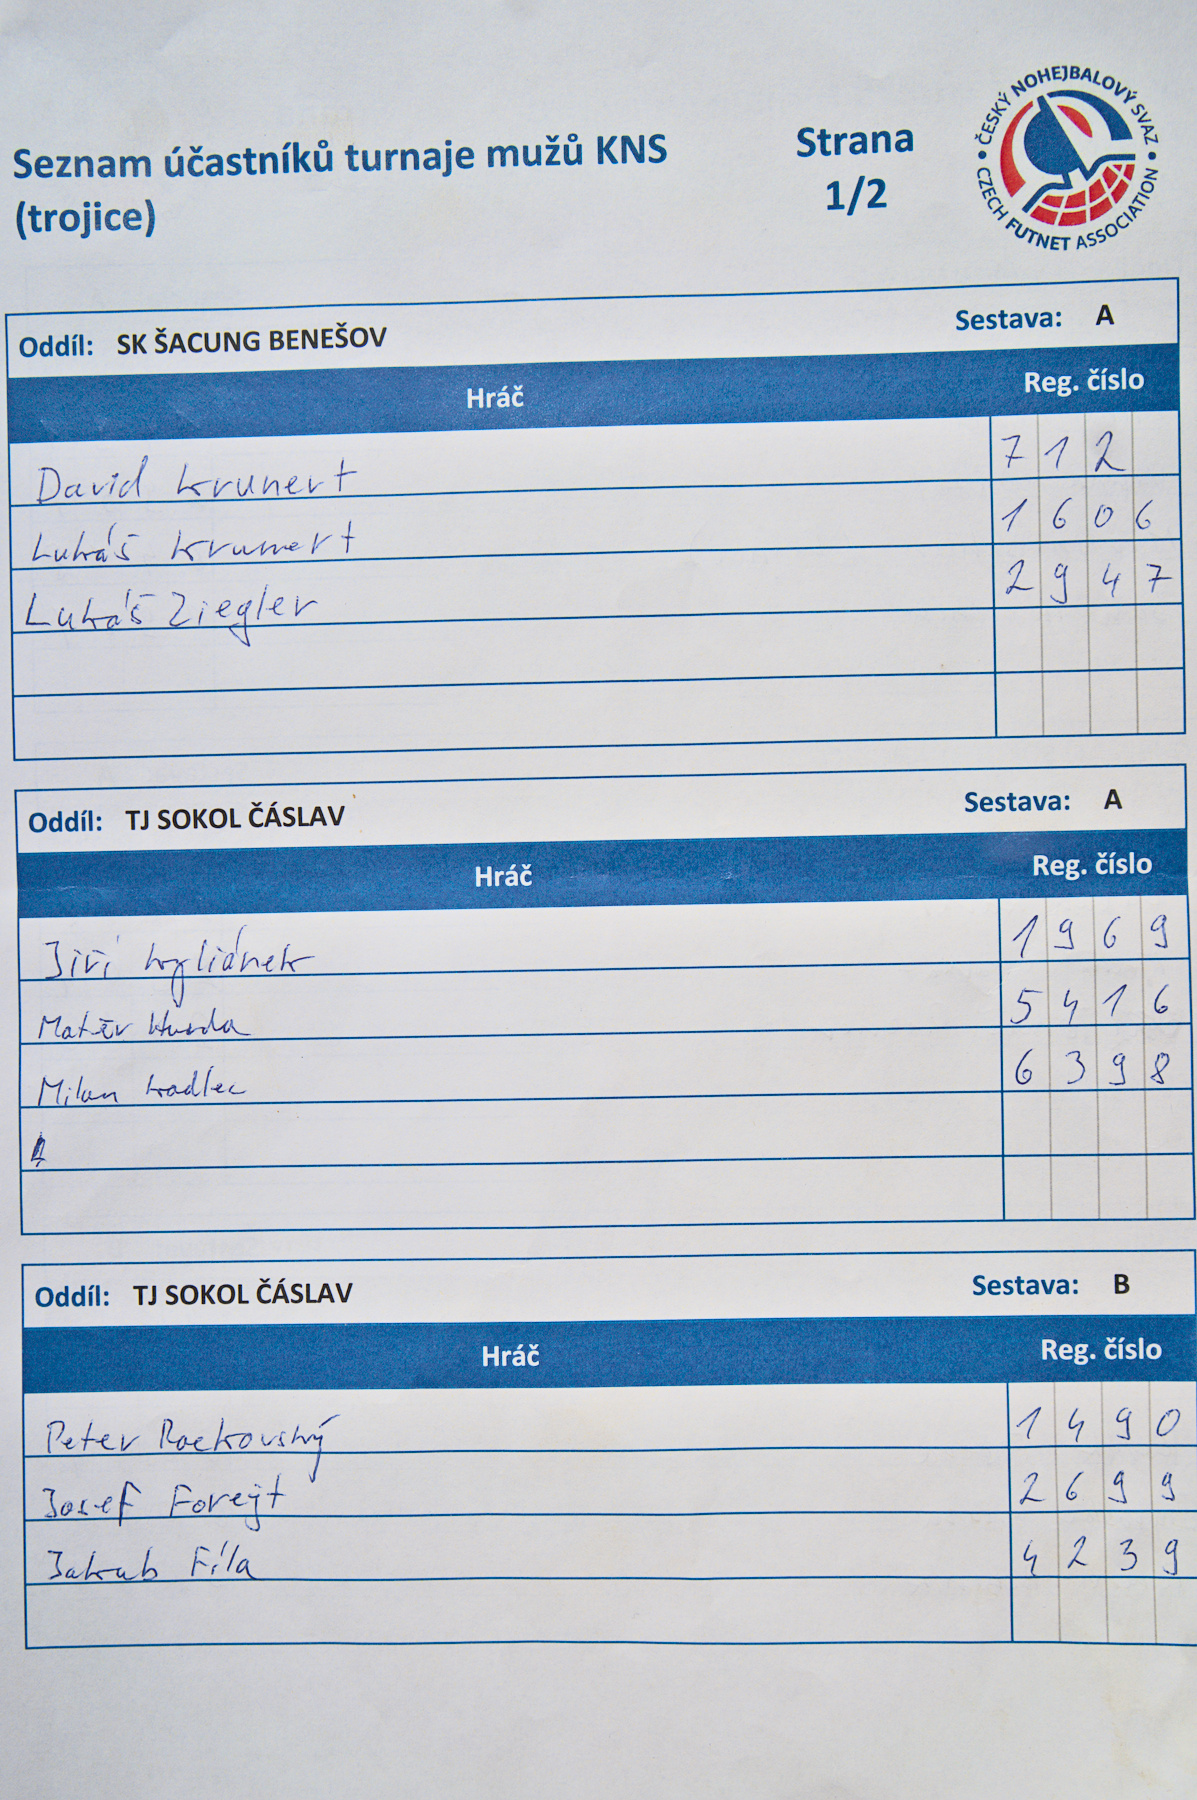 Seznam účastníků turnaje mužů KNS
(trojice)
Strana
1/2
ČESKÝ NOHEJBALOVÝ SVAZ
CZECH FUTNET ASSOCIATION
Oddíl: SK ŠACUNG BENEŠOV Sestava: A
Hráč Reg. číslo
David Krunert 712
Lukáš Krunert 1606
Lukáš Ziegler 2947
Oddíl: TJ SOKOL ČÁSLAV Sestava: A
Hráč Reg. číslo
Jiří Kyliánek 1969
Matěv Hurda 5416
Milan Kadlec 6398
Oddíl: TJ SOKOL ČÁSLAV Sestava: B
Hráč Reg. číslo
Peter Rockovský 1490
Josef Forejt 2699
Jakub Fíla 4239